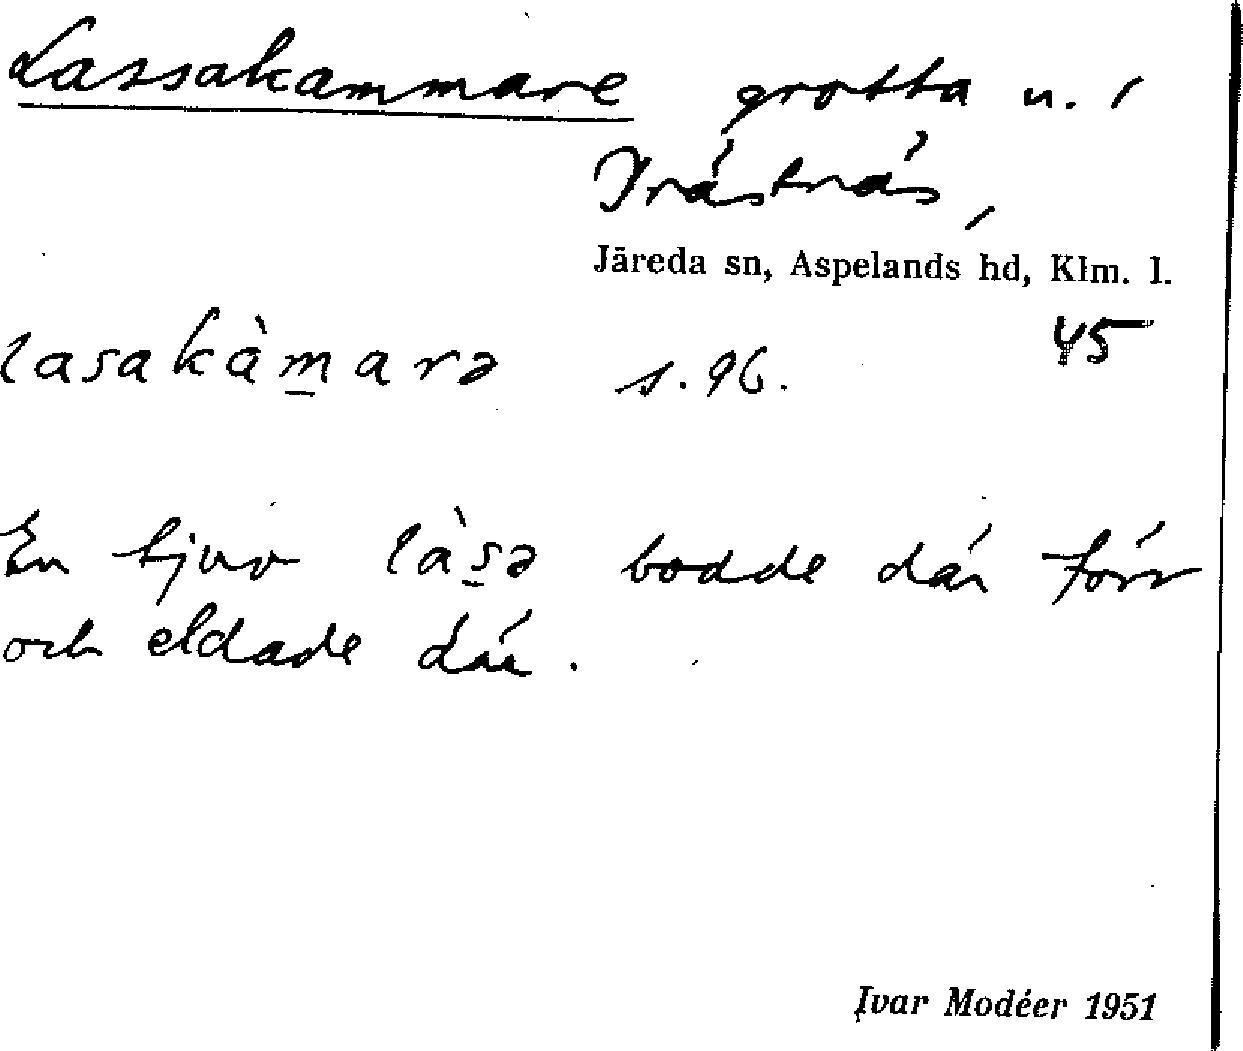 Lassakammare grotta n. i
Träsnäs,
Järeda sn, Aspelands hd, Klm. l.
lasakàm̲arə s. 96. 45
En tjuv làs̲ə bodde där förr
och eldade där.
Ivar Modéer 1951